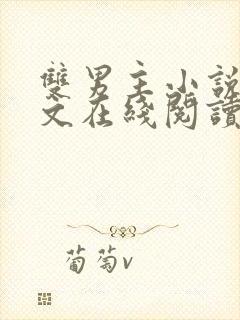 雙男主小說
文在綫閱讀
葡萄v